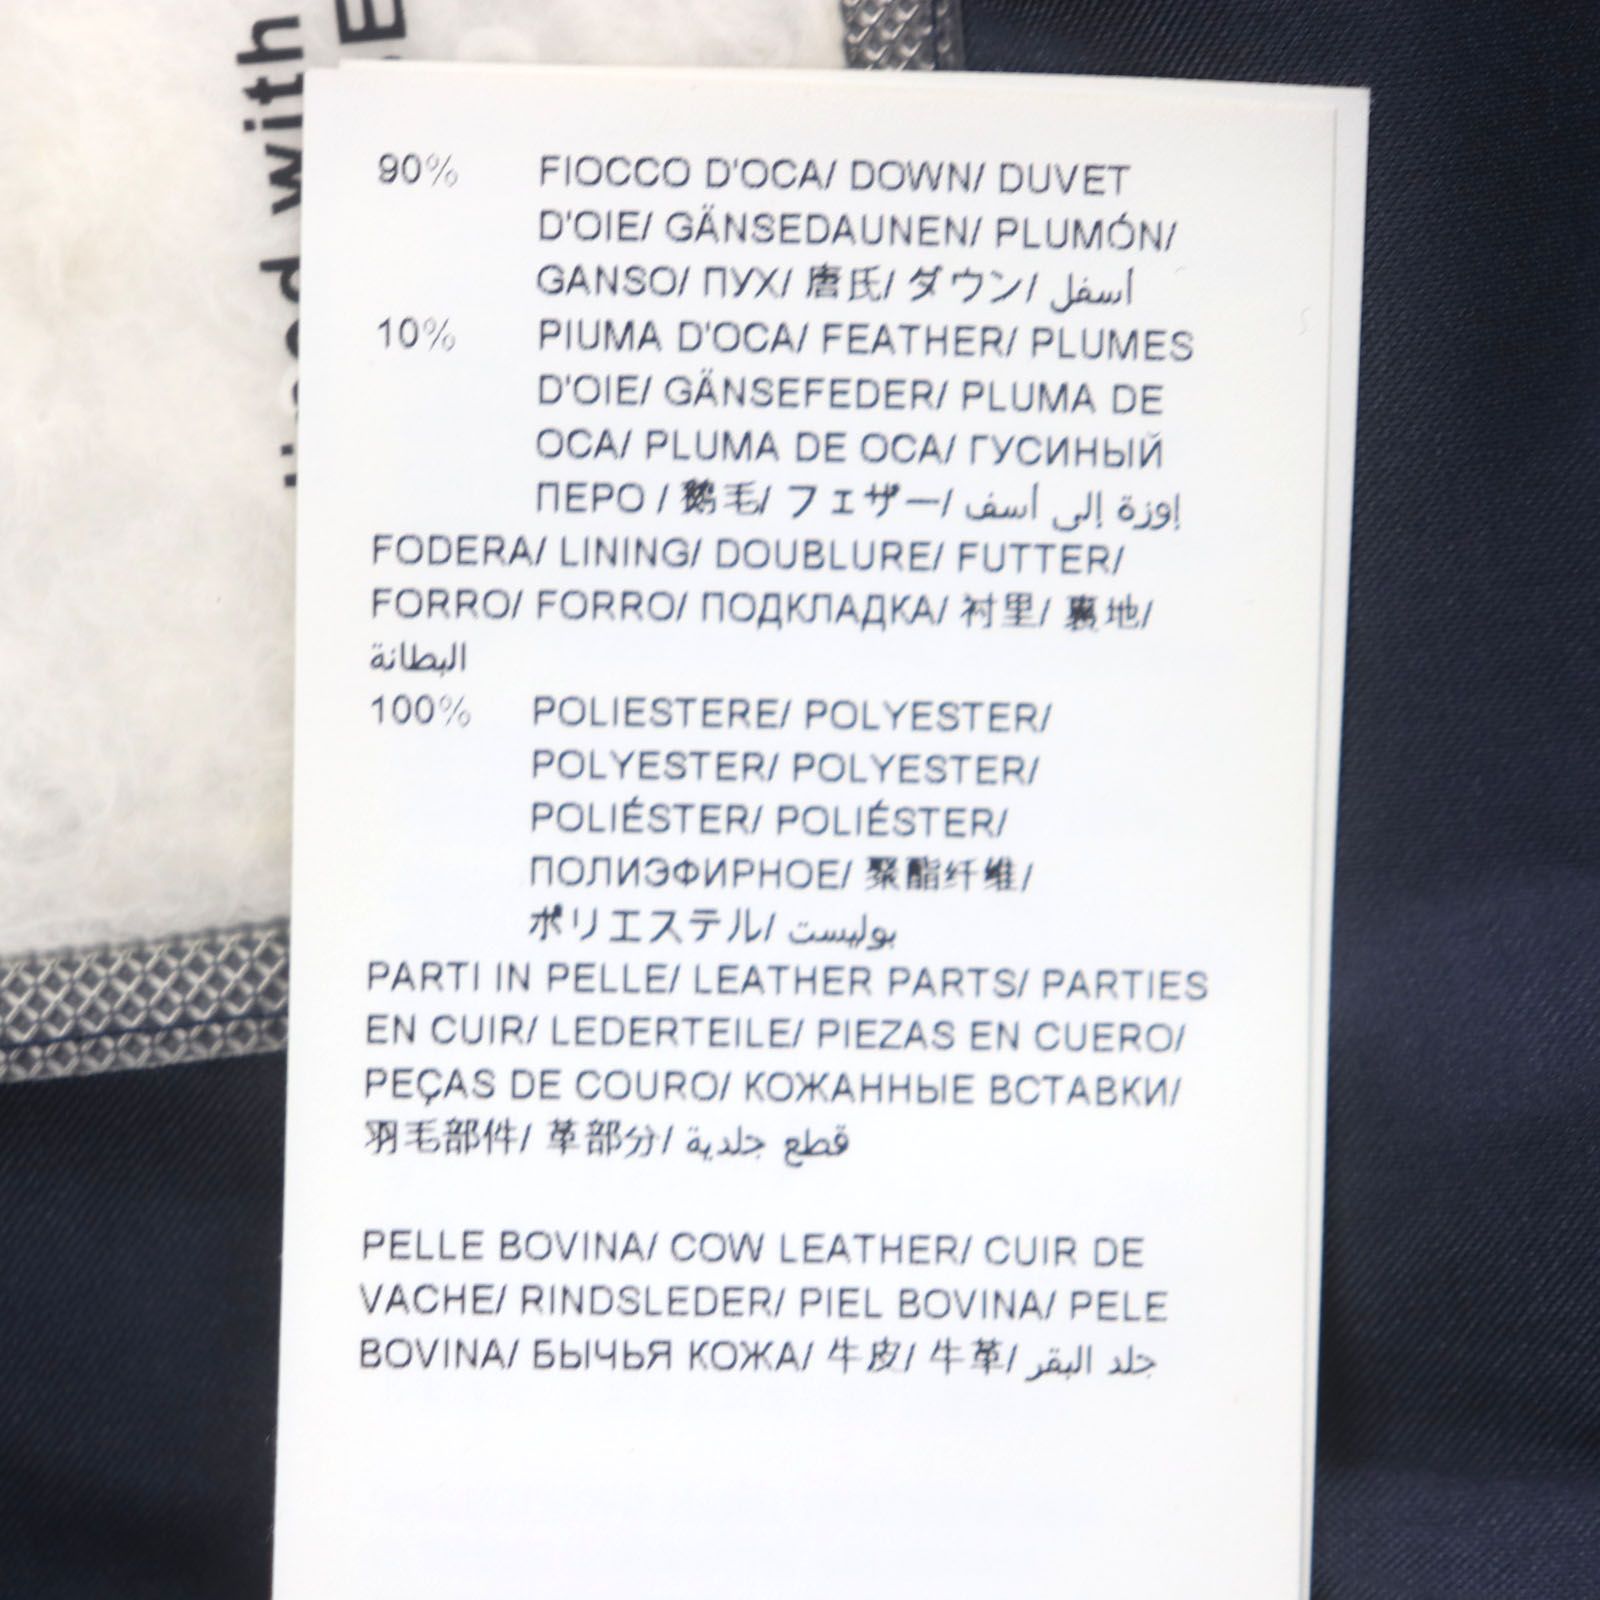 90% FIOCCO D'OCA/ DOWN/ DUVET
D'OIE/ GÄNSEDAUNEN/ PLUMÓN/
GANSO/ ПУХ/ 唐氏/ ダウン/ أسفل
10% PIUMA D'OCA/ FEATHER/ PLUMES
D'OIE/ GÄNSEFEDER/ PLUMA DE
OCA/ PLUMA DE OCA/ ГУСИНЫЙ
ПЕРО / 鹅毛/ フェザー/ إوزة إلى أسف
FODERA/ LINING/ DOUBLURE/ FUTTER/
FORRO/ FORRO/ ПОДКЛАДКА/ 衬里/ 裏地/
البطانة
100% POLIESTERE/ POLYESTER/
POLYESTER/ POLYESTER/
POLIÉSTER/ POLIÉSTER/
ПОЛИЭФИРНОЕ/ 聚酯纤维/
ポリエステル/ بوليست
PARTI IN PELLE/ LEATHER PARTS/ PARTIES
EN CUIR/ LEDERTEILE/ PIEZAS EN CUERO/
PEÇAS DE COURO/ КОЖАННЫЕ ВСТАВКИ/
羽毛部件/ 革部分/ قطع جلدية
PELLE BOVINA/ COW LEATHER/ CUIR DE
VACHE/ RINDSLEDER/ PIEL BOVINA/ PELE
BOVINA/ БЫЧЬЯ КОЖА/ 牛皮/ 牛革/ جلد البقر
with